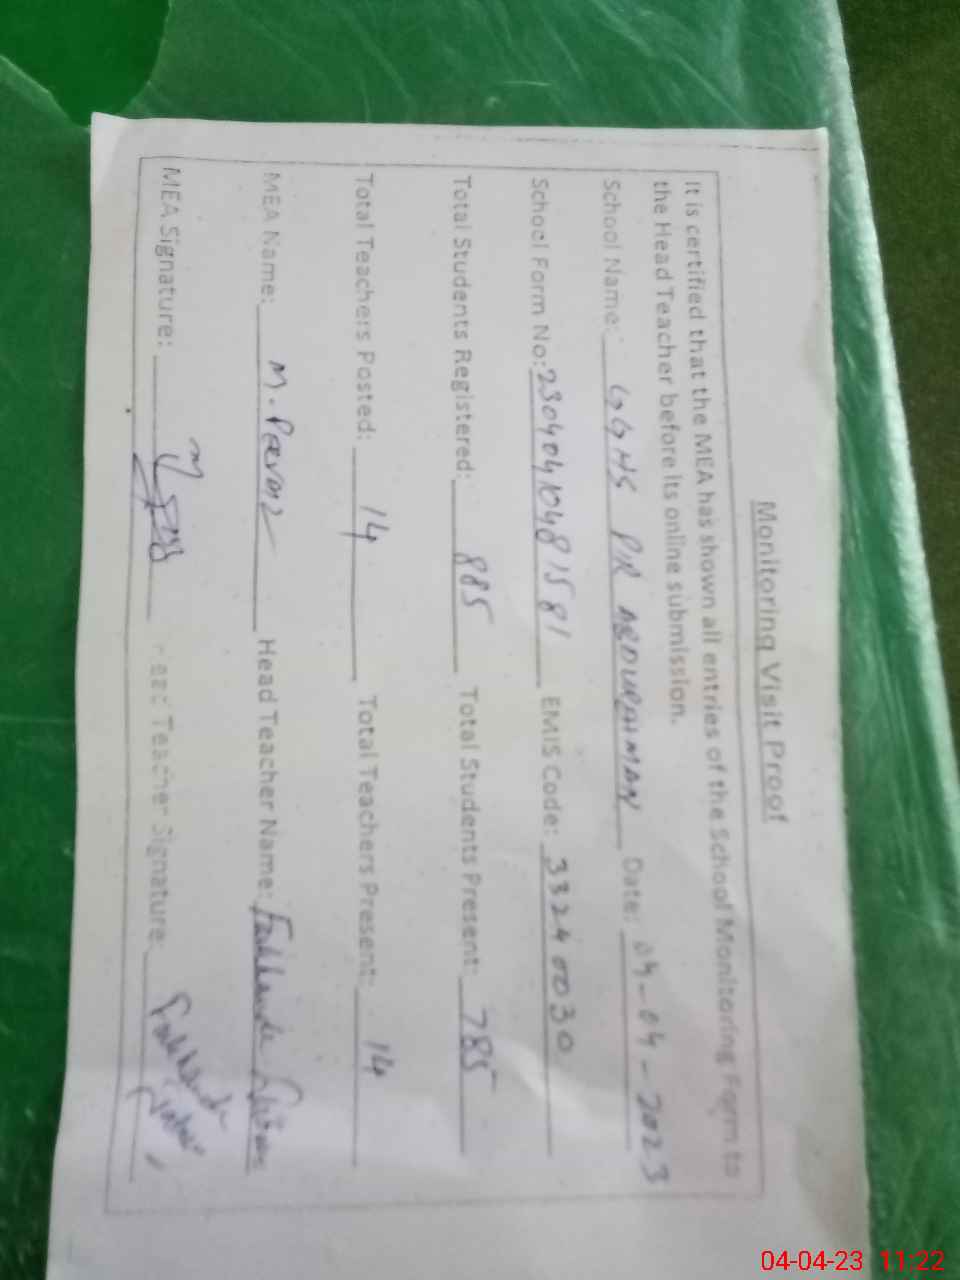 Monitoring Visit Proof
It is certified that the MEA has shown all entries of the School Monitoring Form to
the Head Teacher before its online submission.
School Name: GGHS PIR ABDURAHMAN Date: 04-04-2023
School Form No: 23040410481581 EMIS Code: 33240030
Total Students Registered: 885 Total Students Present: 785
Total Teachers Posted: 14 Total Teachers Present: 14
MEA Name: M. Parvaz Head Teacher Name: Farkhanda
MEA Signature: Head Teacher Signature: Farkhanda
04-04-23 11:22